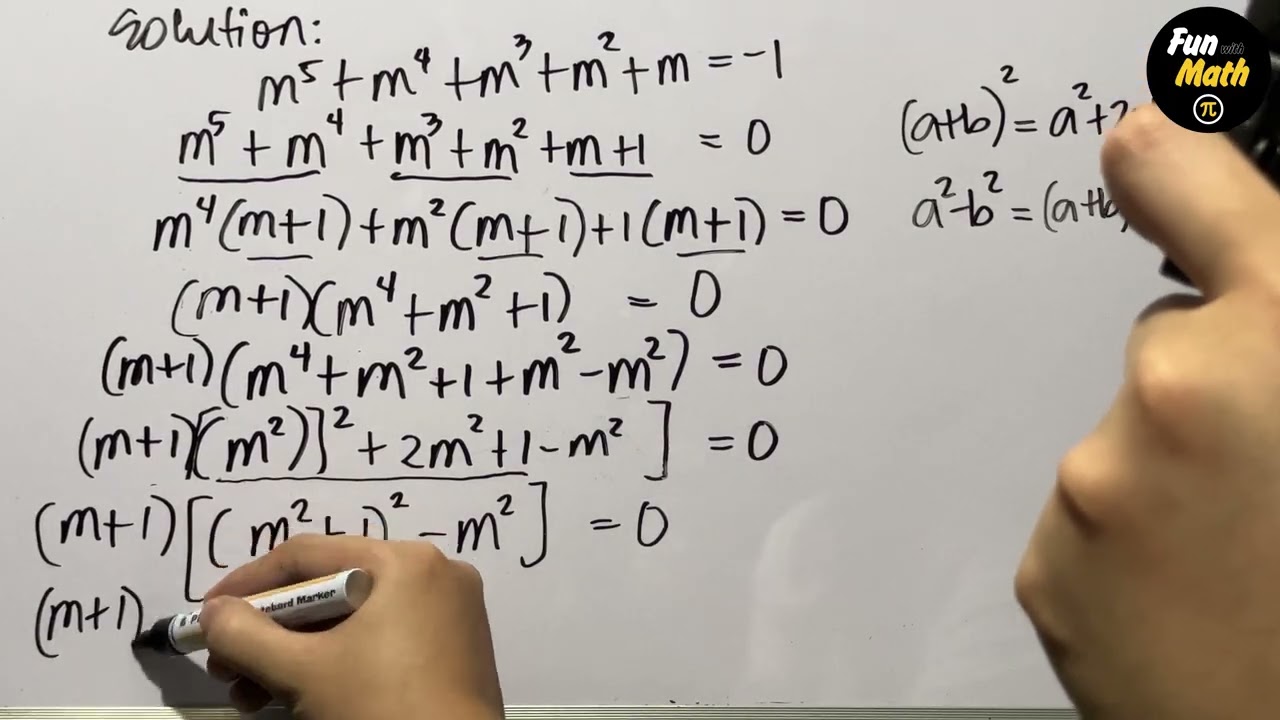 Solution:
m⁵+m⁴+m³+m²+m=-1
m⁵+m⁴+m³+m²+m+1 =0
m⁴(m+1)+m²(m+1)+1(m+1)=0
(m+1)(m⁴+m²+1) =0
(m+1)(m⁴+m²+1+m²-m²)=0
(m+1)[(m²)]²+2m²+1-m²]=0
(m+1)[(m²+1)²-m²]=0
(m+1)
(a+b)²=a²+2
a²-b²=(a+b
Fun with
Math
π
Marker